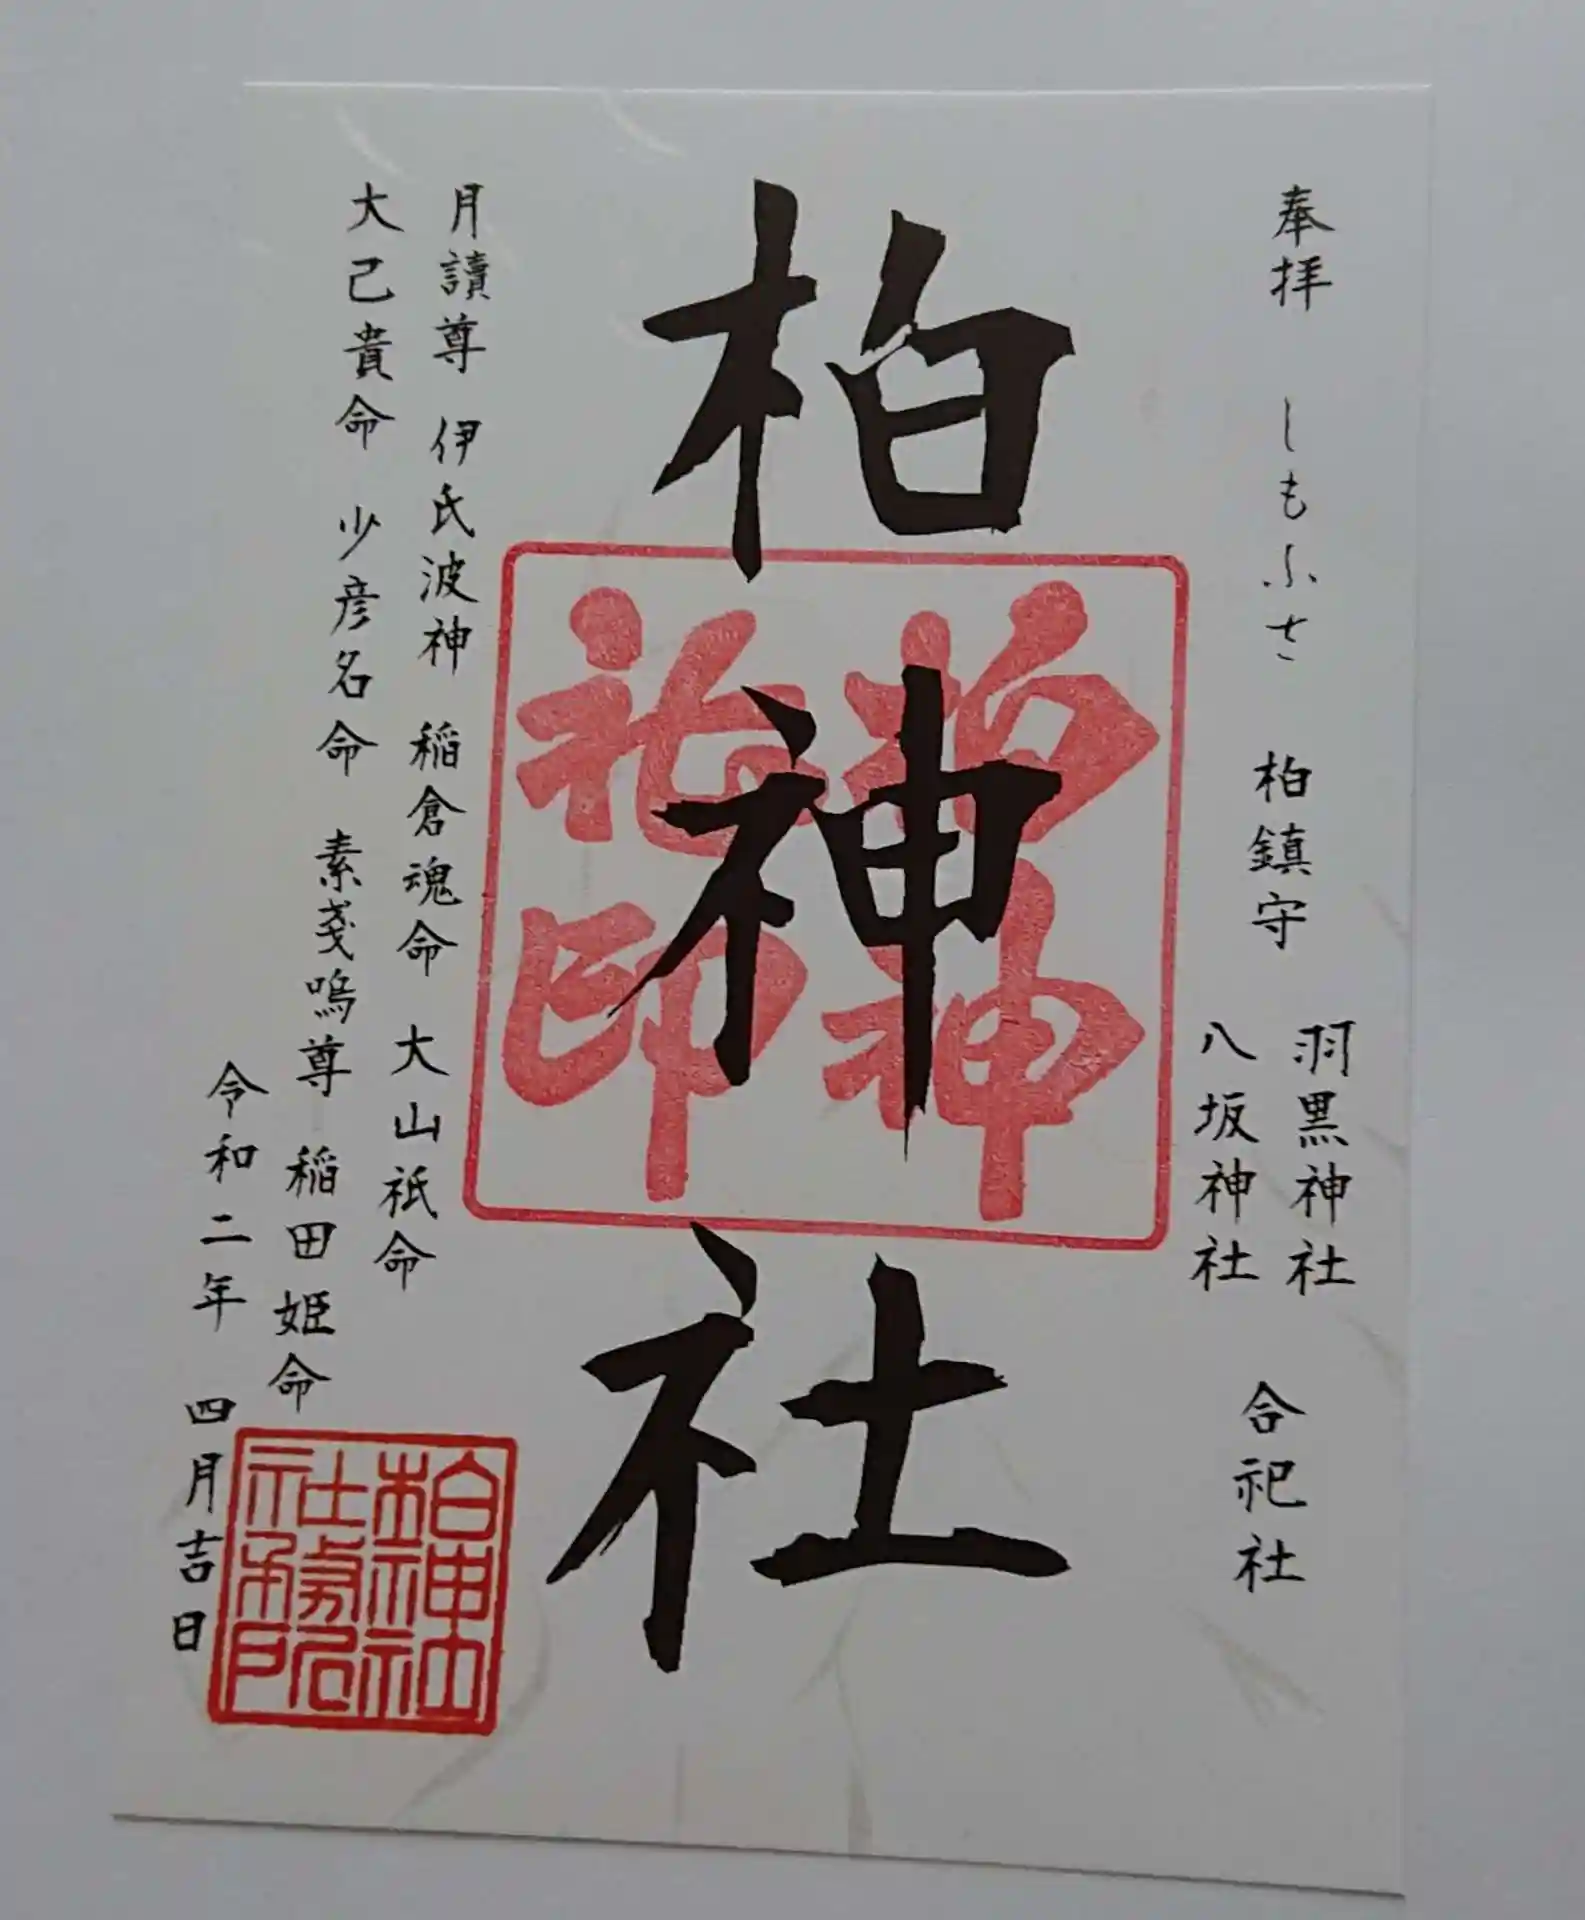 奉拝 しもふさ 柏鎮守
羽黒神社
八坂神社
合祀社
柏神社
柏神
社印
月讀尊 伊氐波神 稲倉魂命 大山祇命
大己貴命 少彦名命 素戔嗚尊 稲田姫命
令和二年 四月吉日
柏神社
社務所